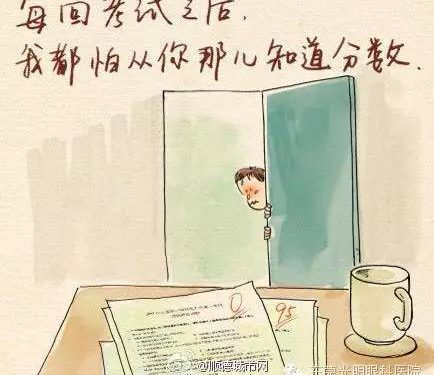 每回考试之后,
我都怕从你那儿知道分数.
0
95
@顺德城市网
东莞光明眼科医院